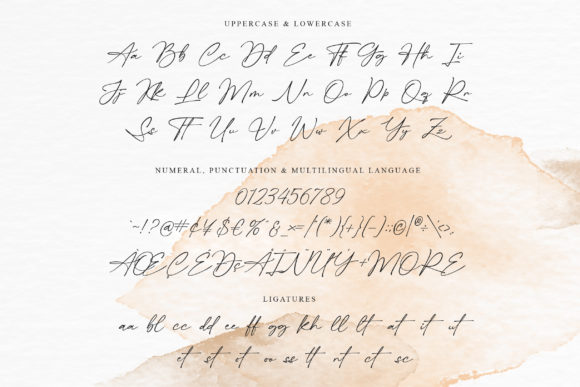 UPPERCASE & LOWERCASE
Aa Bb Cc Dd Ee Ff Gg Hh Ii
Jj Kk Ll Mm Nn Oo Pp Qq Rr
Ss Tt Uu Vv Ww Xx Yy Zz
NUMERAL, PUNCTUATION & MULTILINGUAL LANGUAGE
0123456789
+MORE
LIGATURES
aa bl cc dd ee ff gg kh ll lt at it ut
et st ot oo ss tt nt ct sc